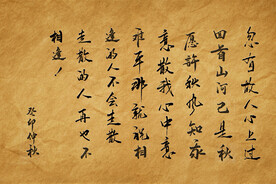 忽有故人心上过
回首山河已是秋
愿许秋风知我
意散我心中意
难平那就祝相
逢的人不会走散
走散的人再也不
相逢！
癸卯仲秋